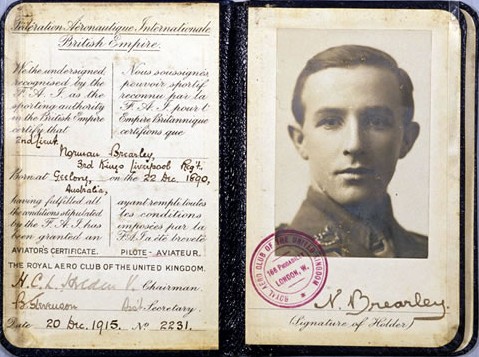 Fédération Aéronautique Internationale
British Empire.
We the undersigned
recognised by the
F.A.I. as the
sporting authority
in the British Empire
certify that
Nous soussignés
pouvoir sportif
reconnu par la
F.A.I. pour l'
Empire Britannique
certifions que
2nd Lieut
Norman Brearley,
3rd Kings Liverpool Regt.
Born at Geelong, on the 22 Dec. 1890,
Australia,
having fulfilled all
the conditions stipulated
by the F.A.I. has
been granted an
AVIATOR'S CERTIFICATE.
ayant rempli toutes
les conditions
imposées par la
F.A.I. a été breveté
PILOTE-AVIATEUR.
THE ROYAL AERO CLUB OF THE UNITED KINGDOM.
Chairman.
B. Stevenson Asst Secretary.
Date 20 Dec. 1915. No 2231.
ROYAL AERO CLUB OF THE UNITED KINGDOM
166 PICCADILLY
LONDON, W.
N. Brearley.
(Signature of Holder)